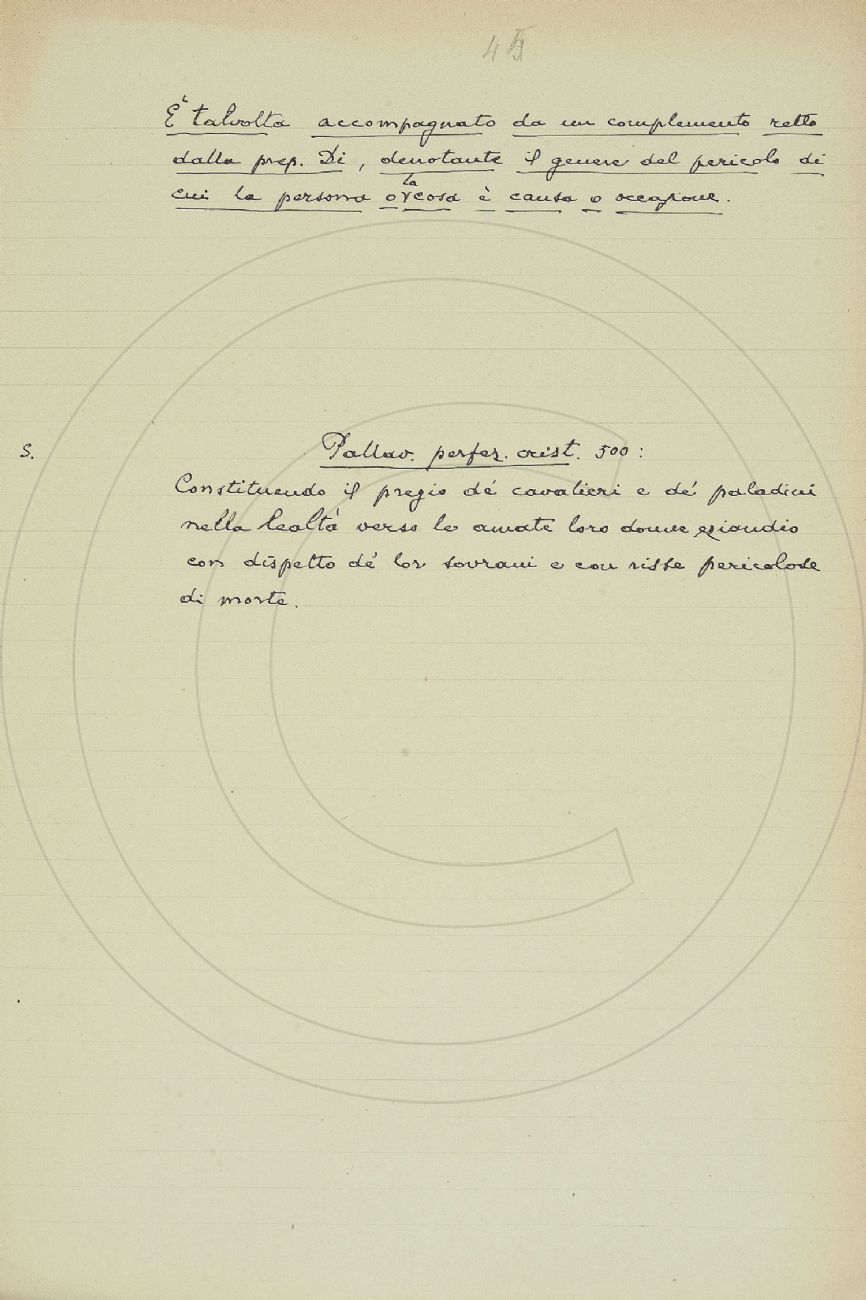 È talvolta accompagnato da un complemento retto
dalla prep. Di, denotante il genere del pericolo di
cui la persona o la cosa è causa o occasione.
S.
Pallav. perfez. crist. 500:
Constituendo il pregio dé cavalieri e dé paladini
nella lealtà verso le amate loro donne eziandio
con dispetto dé lor sovrani e con risse pericolose
di morte.